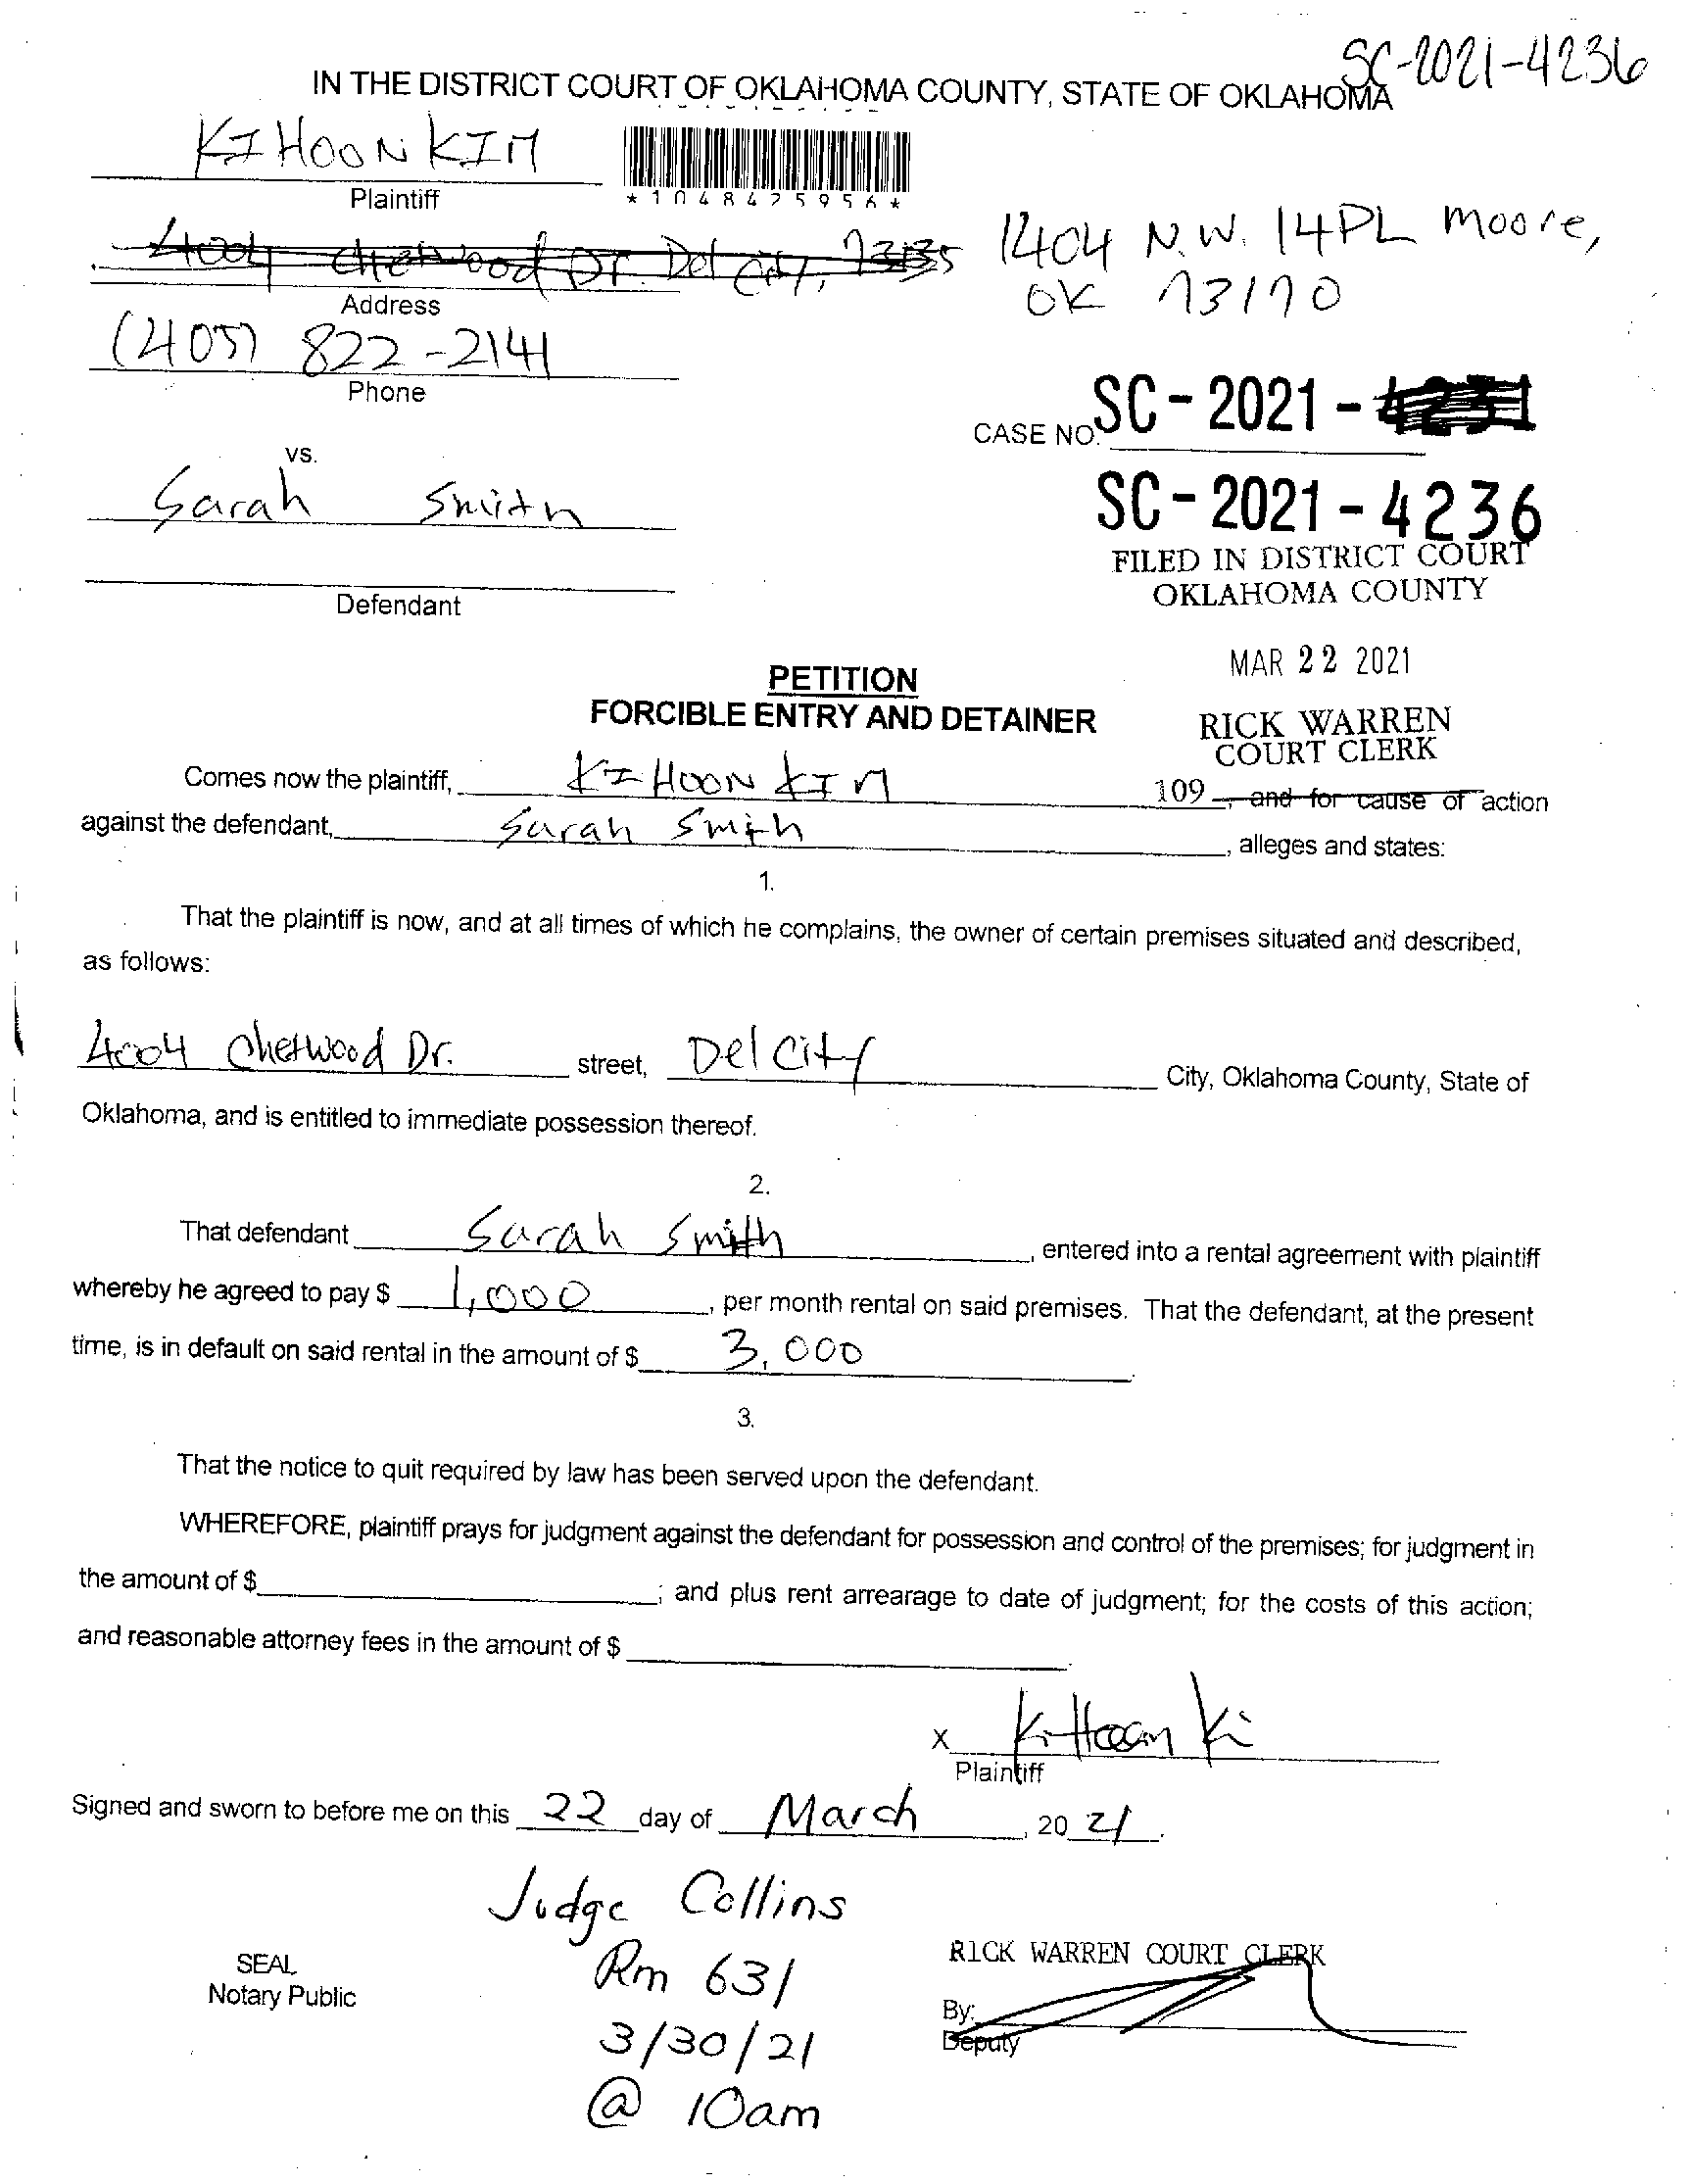 SC-2021-4236
IN THE DISTRICT COURT OF OKLAHOMA COUNTY, STATE OF OKLAHOMA
KI HOON KIM
Plaintiff
*1048425956*
4004 Chetwood Dr. Del City, 73135
1404 N.W. 14PL Moore,
OK 73170
Address
(405) 822-2141
Phone
CASE NO. SC-2021-4231
vs.
Sarah Smith
SC-2021-4236
FILED IN DISTRICT COURT
OKLAHOMA COUNTY
Defendant
MAR 22 2021
PETITION
FORCIBLE ENTRY AND DETAINER
RICK WARREN
COURT CLERK
Comes now the plaintiff, KI HOON KIM 109 , and for cause of action
against the defendant, Sarah Smith , alleges and states:
1.
That the plaintiff is now, and at all times of which he complains, the owner of certain premises situated and described,
as follows:
4004 Chetwood Dr. street, Del City City, Oklahoma County, State of
Oklahoma, and is entitled to immediate possession thereof.
2.
That defendant Sarah Smith , entered into a rental agreement with plaintiff
whereby he agreed to pay $ 1,000 , per month rental on said premises. That the defendant, at the present
time, is in default on said rental in the amount of $ 3,000 .
3.
That the notice to quit required by law has been served upon the defendant.
WHEREFORE, plaintiff prays for judgment against the defendant for possession and control of the premises; for judgment in
the amount of $ ; and plus rent arrearage to date of judgment; for the costs of this action;
and reasonable attorney fees in the amount of $ .
X Ki Hoon Ki
Plaintiff
Signed and sworn to before me on this 22 day of March , 20 21 .
Judge Collins
Rm 631
3/30/21
@ 10am
SEAL
Notary Public
RICK WARREN COURT CLERK
By:
Deputy